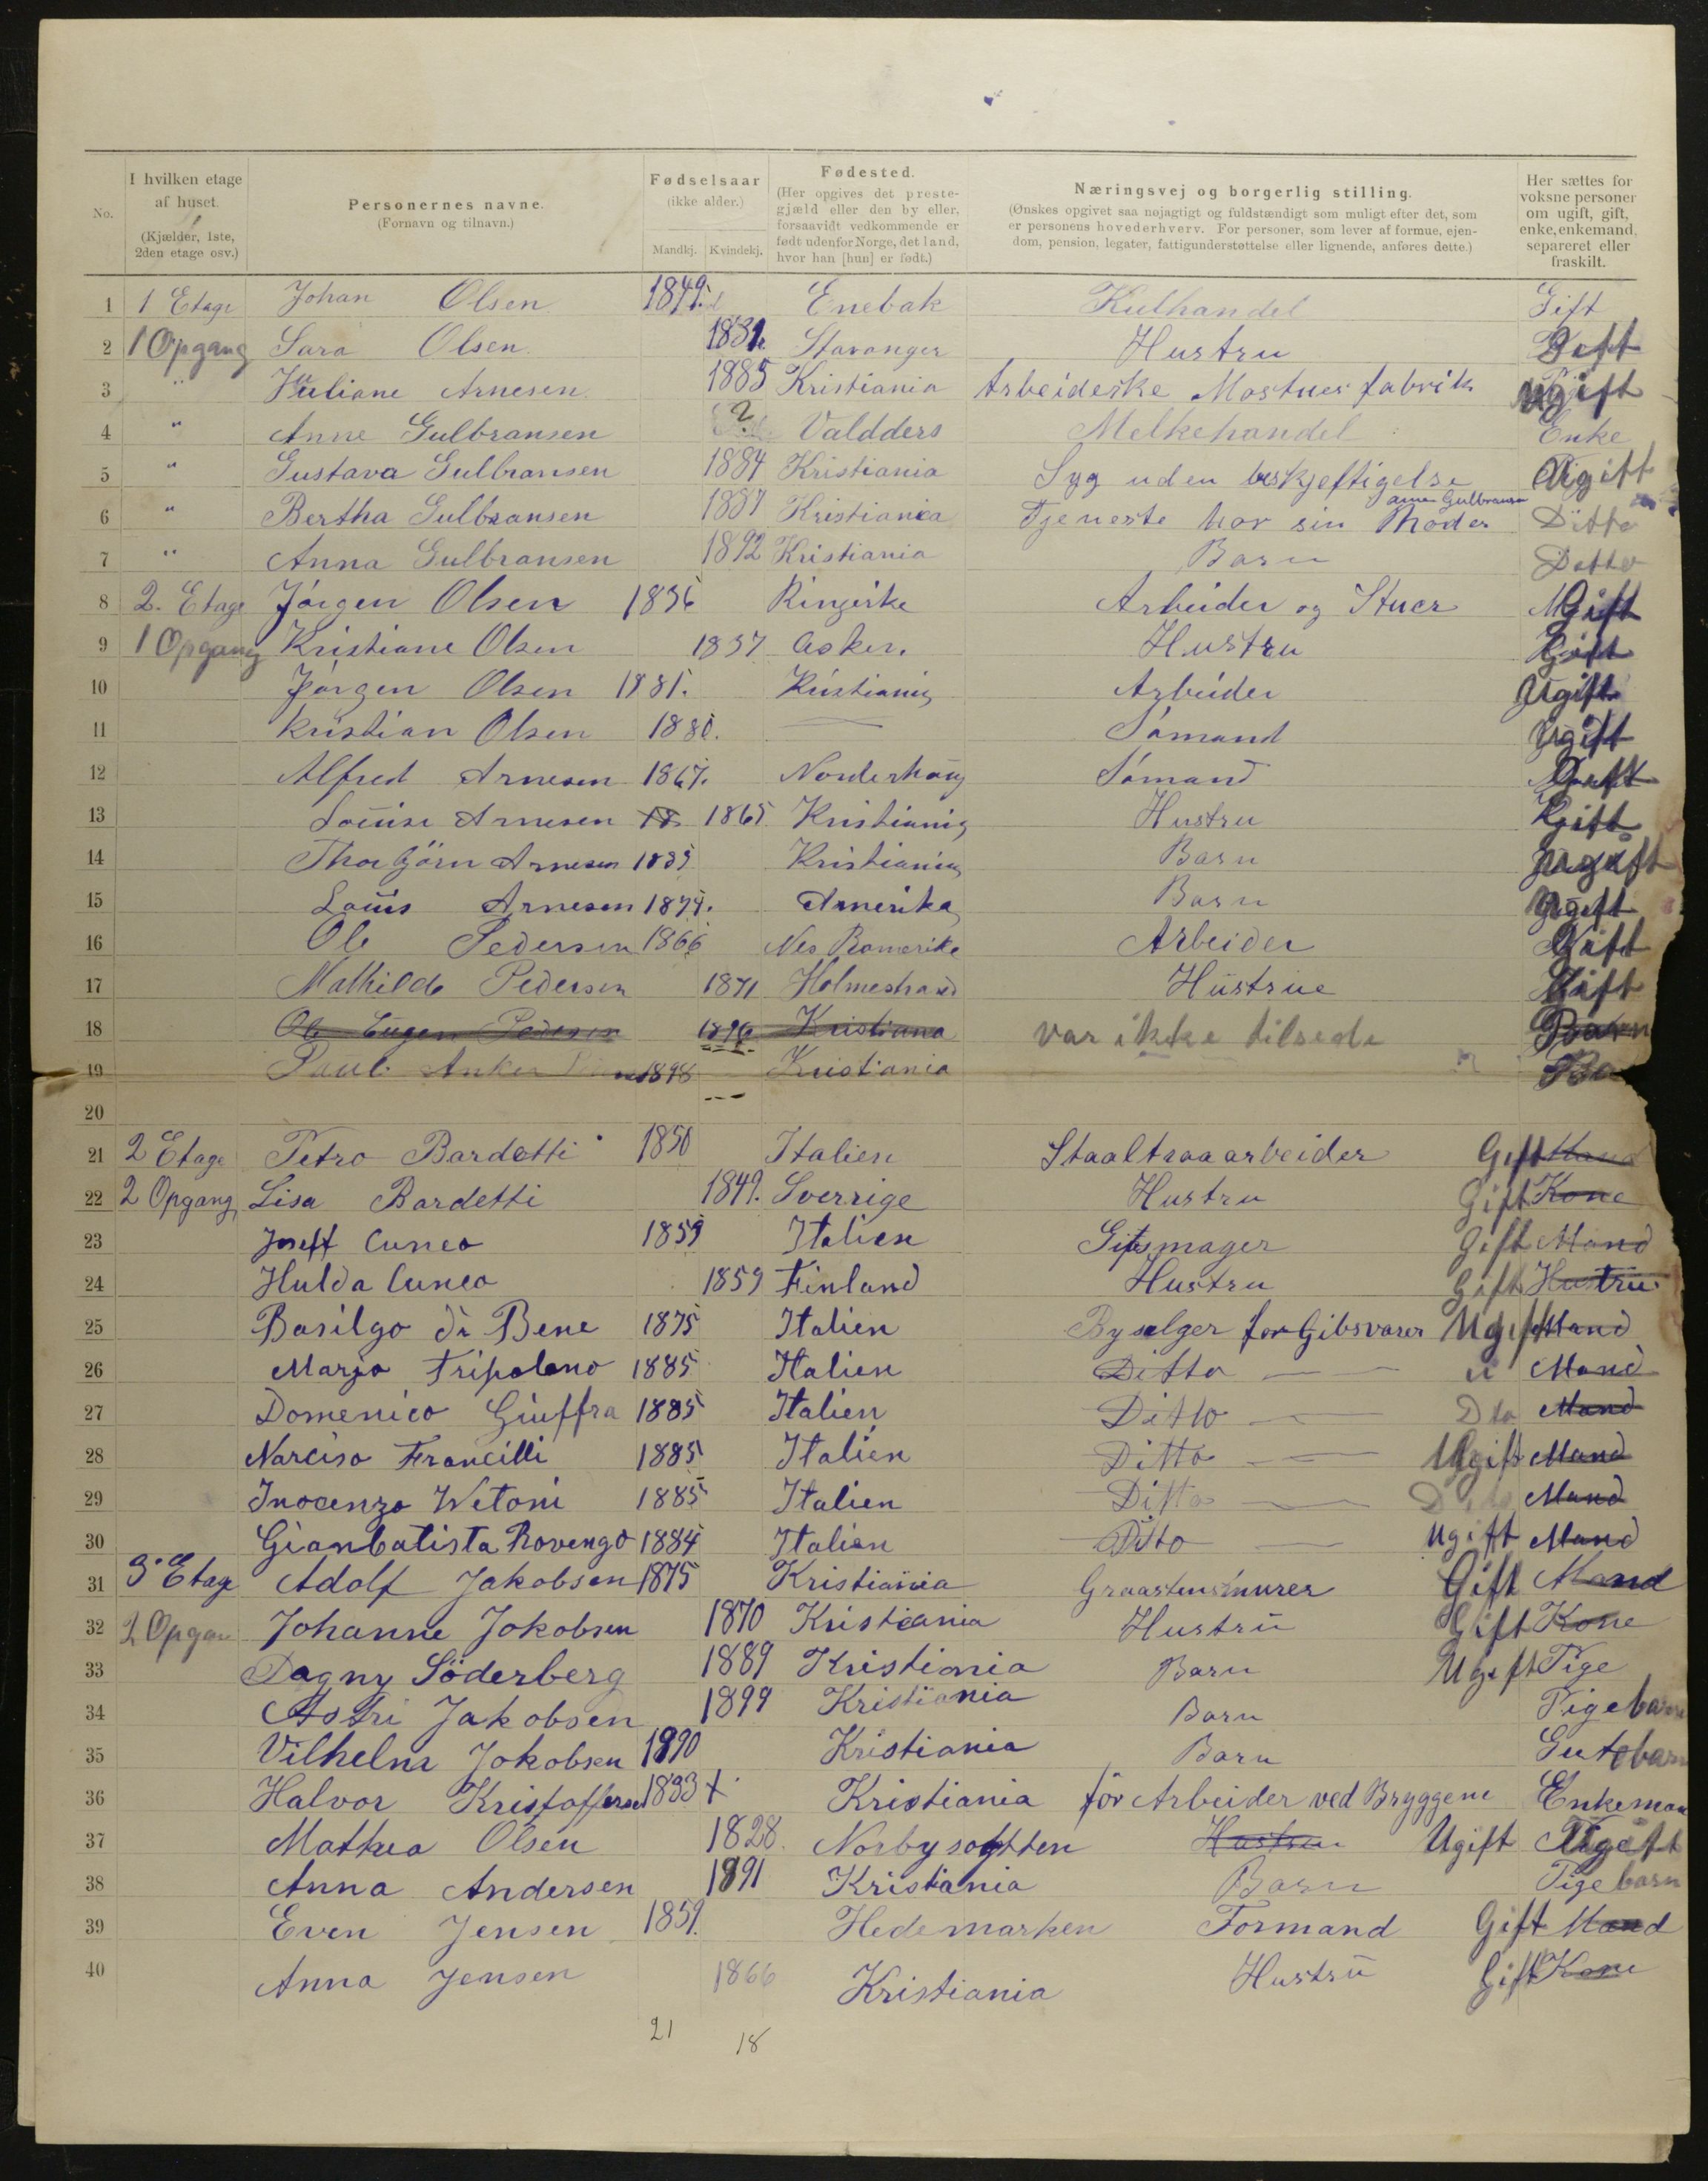 No. | I hvilken etage af huset. (Kjælder, 1ste, 2den etage osv.) | Personernes navne. (Fornavn og tilnavn.) | Fødselsaar (ikke alder.) Mandkj. Kvindekj. | Fødested. (Her opgives det prestegjæld eller den by eller, forsaavidt vedkommende er født udenfor Norge, det land, hvor han [hun] er født.) | Næringsvej og borgerlig stilling. (Ønskes opgivet saa nøjagtigt og fuldstændigt som muligt efter det, som er personens hovederhverv. For personer, som lever af formue, ejendom, pension, legater, fattigunderstøttelse eller lignende, anføres dette.) | Her sættes for voksne personer om ugift, gift, enke, enkemand, separeret eller fraskilt.
1 1 Etage Johan Olsen 1849. Enebak Kulhandel Gift
2 1 Opgang Sara Olsen Stavanger Hustru Gift
3 " Juliane Arnesen 1885 Kristiania Arbeiderske Mostues fabrik Ugift
4 " Anne Gulbransen ? Valdders Melkehandel Enke
5 " Gustava Gulbransen 1884 Kristiania Syg uden beskjeftigelse Ugift
6 " Bertha Gulbransen 1887 Kristiania Tjeneste hor sin Moder Anne Gulbransen Ditto
7 " Anna Gulbransen 1892 Kristiania Barn Ditto
8 2. Etage Jörgen Olsen 1836 Ringerike Arbeider og Stuer Gift
9 1 Opgang Kristiane Olsen 1837 Asker. Hustru Gift
10 Jörgen Olsen 1881. Kristiania Arbeider Ugift
11 Kristian Olsen 1880. — Sömand Ugift
12 Alfred Arnesen 1867. Norderhoug Sömand Gift
13 Louise Arnesen 18 1865 Kristiania Hustru Gift
14 Thorbjörn Arnesen Kristiania Barn Ugift
15 Louis Arnesen Amerika Barn Ugift
16 Ole Pedersen 1866 Nes Romerike Arbeider Gift
17 Mathilde Pedersen 1871 Holmestrand Hustrue Gift
18 Ole Eugen Pedersen 1896 Kristiana var ikke tilsede Barn
19 Paul Anker 1898 Kristiania
20
21 2 Etage Petro Bardetti 1850 Italien Staaltraaarbeider Gift Mand
22 2 Opgang Lisa Bardetti 1849. Sverrige Hustru Gift Kone
23 Joseff Cuneo 1859 Italien Gipsmager Gift Mand
24 Hulda Cuneo 1859 Finland Hustru Gift Hustrue
25 Basilgo di Bene 1875 Italien Byselger for Gibsvarer Ugift Mand
26 Marjo Fripoleno 1885 Italien Ditto — — " Mand
27 Domenico Giuffra 1885 Italien Ditto — Dto Mand
28 Narciso Francilli 1885 Italien Ditto — — Ugift Mand
29 Inocenzo Wetoni 1885 Italien Ditto — Dito Mand
30 Gianbatista Rovengo 1884 Italien Ditto — Ugift Mand
31 3 Etage Adolf Jakobsen 1875 Kristiania Graastensmurer Gift Mand
32 2 Opgan Johanne Jokobsen 1870 Kristiania Hustru Gift Kone
33 Dagny Söderberg 1889 Kristiania Barn Ugift Pige
34 Astri Jakobsen 1899 Kristiania Barn Pigebarn
35 Vilhelm Jokobsen 1890 Kristiania Barn Guttebarn
36 Halvor Kristoffersen 1833 + Kristiania för Arbeider ved Bryggene Enkeman
37 Mathea Olsen 1828. Hustru Ugift Ugift
38 Anna Andersen 1891 Kristiania Barn Pigebarn
39 Even Jensen 1859. Hedemarken Formand Gift Mand
40 Anna Jensen 1866 Kristiania Hustru Gift Kone
21 18